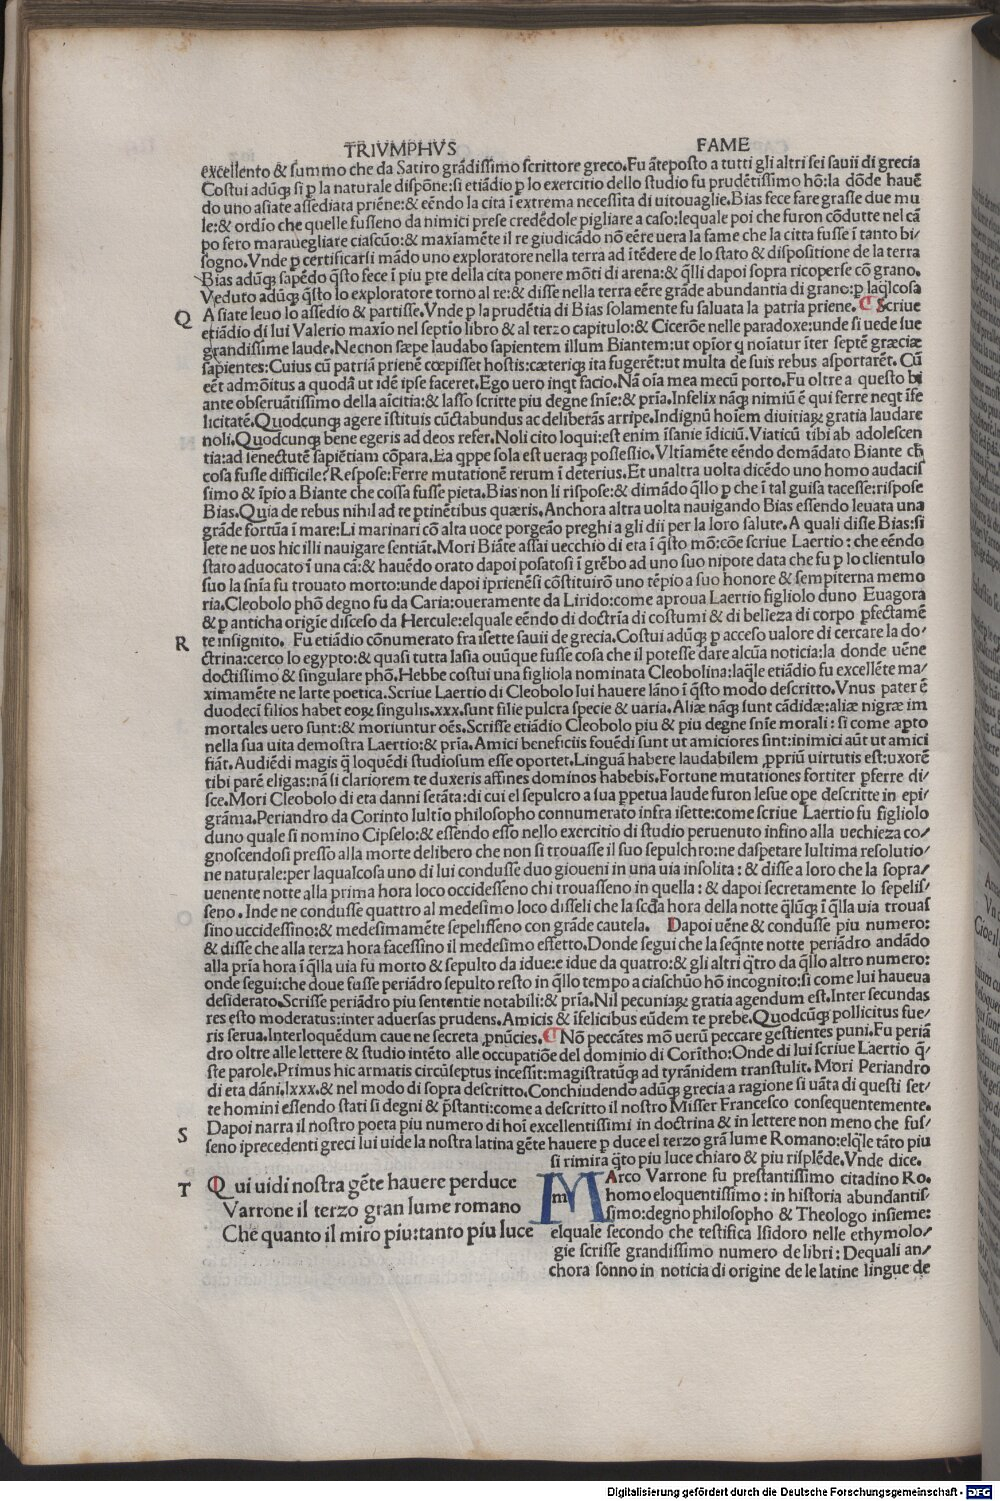 TRIVMPHVS FAME
excellento & summo che da Satiro grãdissimo scrittore greco.Fu ãteposto a tutti gli altri sei sauii di grecia
Costui adũqꝫ si ꝑ la naturale dispõne:si etiãdio ꝑ lo exercitio dello studio fu prudẽtissimo hõ:la dõde hauẽ
do uno asiate assediata priẽne:& eẽndo la cita ĩ extrema necessita di uitouaglie.Bias fece fare grasse due mu
le:& ordio che quelle fusseno da nimici prese credẽdole pigliare a caso:lequale poi che furon cõdutte nel cã
po fero marauegliare ciascũo:& maxiamẽte il re giudicãdo nõ eẽre uera la fame che la citta fusse ĩ tanto bi/
sogno.Vnde ꝑ certificarsi mãdo uno exploratore nella terra ad itẽdere de lo stato & dispositione de la terra
Bias adũqꝫ sapẽdo q̃sto fece ĩ piu ꝑte della cita ponere mõti di arena:& q̃lli dapoi sopra ricoperse cõ grano.
Veduto adũqꝫ q̃sto lo exploratore torno al re:& disse nella terra eẽre grãde abundantia di grano:ꝑ laq̃lcosa
Q Asiate leuo lo assedio & partisse.Vnde ꝑ la prudẽtia di Bias solamente fu saluata la patria priene. ¶ Scriue
etiãdio di lui Valerio maxio nel septio libro & al terzo capitulo:& Cicerõe nelle paradoxe:unde si uede sue
grandissime laude.Necnon sæpe laudabo sapientem illum Biantem:ut opior q noiatur iter septẽ græciæ
sapientes:Cuius cũ patriã prienẽ cœpisset hostis:cæteriqꝫ ita fugerẽt:ut multa de suis rebus asportarẽt. Cũ
eẽt admõitus a quodã ut idẽ ipse faceret.Ego uero inqt facio.Nã oia mea mecũ porto.Fu oltre a questo bi
ante obseruãtissimo della aicitia:& lasso scritte piu degne snie:& pria.Infelix nãqꝫ nimiũ ẽ qui ferre neqt ife
licitatẽ.Quodcunqꝫ agere istituis cũctabundus ac deliberãs arripe.Indignũ hoiem diuitiaꝝ gratia laudare
noli.Quodcunqꝫ bene egeris ad deos refer.Noli cito loqui:est enim isanie idiciũ.Viaticũ tibi ab adolescen
tia:ad senectutẽ sapiẽtiam cõpara.Ea qppe sola est ueraqꝫ possessio.Vltiamẽte eẽndo domãdato Biante ch
cosa fusse difficile?Respose:Ferre mutationẽ rerum ĩ deterius.Et unaltra uolta dicẽdo uno homo audacis
simo & ipio a Biante che cossa fusse pieta.Bias non li rispose:& dimãdo q̃llo ꝑ che ĩ tal guisa tacesse:rispose
Bias.Quia de rebus nihil ad te ptinẽtibus quæris.Anchora altra uolta nauigando Bias essendo leuata una
grãde fortũa ĩ mare:Li marinari cõ alta uoce porgeão preghi a gli dii per la loro salute.A quali disse Bias:si
lete ne uos hic illi nauigare sentiãt.Mori Biãte assai uecchio di eta ĩ q̃sto mõ:cõe scriue Laertio:che eẽndo
stato aduocato ĩ una cã:& hauẽdo orato dapoi posatosi ĩ grẽbo ad uno suo nipote data che fu ꝑ lo clientulo
suo la snia fu trouato morto:unde dapoi ipriẽnesi cõstituirõ uno tẽpio a suo honore & sempiterna memo
ria.Cleobolo phõ degno fu da Caria:oueramente da Lirido:come aproua Laertio figliolo duno Euagora
& ꝑ anticha origie disceso da Hercule:elquale eẽndo di doctria di costumi & di belleza di corpo ꝑfectamẽ
R te insignito. Fu etiãdio cõnumerato fra isette sauii de grecia.Costui adũqꝫ ꝑ acceso ualore di cercare la do/
ctrina:cerco lo egypto:& quasi tutta lasia ouũque fusse cosa che il potesse dare alcũa noticia:la donde uẽne
doctissimo & singulare phõ.Hebbe costui una figliola nominata Cleobolina:laq̃le etiãdio fu excellẽte ma/
ximamẽte ne larte poetica.Scriue Laertio di Cleobolo lui hauere lãno ĩ q̃sto modo descritto.Vnus pater ẽ
duodeci filios habet eoꝝ singulis.xxx.sunt filie pulcra specie & uaria.Aliæ nãqꝫ sunt cãdidæ:aliæ nigræ im
mortales uero sunt:& moriuntur oẽs.Scrisse etiãdio Cleobolo piu & piu degne snie morali:si come apto
nella sua uita demostra Laertio:& pria.Amici beneficiis fouẽdi sunt ut amiciores sint:inimici aũt ut amici
fiãt.Audiẽdi magis q̃ loquẽdi studiosum esse oportet.Linguã habere laudabilem ꝓpriũ uirtutis est:uxorẽ
tibi parẽ eligas:nã si clariorem te duxeris affines dominos habebis.Fortune mutationes fortiter ꝑferre di/
sce.Mori Cleobolo di eta danni setãta:di cui el sepulcro a sua ꝑpetua laude furon lesue ope descritte in epi/
grãma.Periandro da Corinto lultio philosopho connumerato infra isette:come scriue Laertio fu figliolo
duno quale si nomino Cipselo:& essendo esso nello exercitio di studio peruenuto infino alla uechieza co/
gnoscendosi presso alla morte delibero che non si trouasse il suo sepulchro:ne daspetare lultima resolutio/
ne naturale:per laqualcosa uno di lui condusse duo gioueni in una uia insolita:& disse a loro che la sopra/
uenente notte alla prima hora loco occidesseno chi trouasseno in quella:& dapoi secretamente lo sepelis/
seno.Inde ne condusse quattro al medesimo loco disseli che la scḋa hora della notte q̃lũqꝫ ĩ q̃lla uia trouas
sino uccidessino:& medesimamẽte sepelisseno con grãde cautela. Dapoi uẽne & condusse piu numero:
& disse che alla terza hora facessino il medesimo effetto.Donde segui che la seqnte notte periãdro andãdo
alla pria hora ĩ q̃lla uia fu morto & sepulto da idue:e idue da quatro:& gli altri q̃tro da q̃llo altro numero:
onde segui:che doue fusse periãdro sepulto resto in q̃llo tempo a ciaschũo hõ incognito:si come lui haueua
desiderato.Scrisse periãdro piu sententie notabili:& pria.Nil pecuniaꝝ gratia agendum est.Inter secundas
res esto moderatus:inter aduersas prudens.Amicis & ifelicibus eũdem te prebe.Quodcũqꝫ pollicitus fue/
ris serua.Interloquẽdum caue ne secreta ꝓnũcies.¶ Nõ peccãtes mõ uerũ peccare gestientes puni.Fu periã
dro oltre alle lettere & studio intẽto alle occupatiõe del dominio di Corĩtho:Onde di lui scriue Laertio q̃/
ste parole.Primus hic armatis circũseptus incessit:magistratũqꝫ ad tyrãnidem transtulit. Mori Periandro
di eta dãni.lxxx.& nel modo di sopra descritto.Conchiudendo adũqꝫ grecia a ragione si uãta di questi set/
te homini essendo stati si degni & p̃stanti:come a descritto il nostro Misser Francesco consequentemente.
S Dapoi narra il nostro poeta piu numero di hoi excellentissimi in doctrina & in lettere non meno che fus/
seno iprecedenti greci lui uide la nostra latina gẽte hauere ꝑ duce el terzo grã lume Romano:elq̃le tãto piu
si rimira q̃to piu luce chiaro & piu risplẽde.Vnde dice.
T Qui uidi nostra gẽte hauere perduce
Varrone il terzo gran lume romano
Che quanto il miro piu:tanto piu luce
MArco Varrone fu prestantissimo citadino Ro.
homo eloquentissimo:in historia abundantis
simo:degno philosopho & Theologo insieme:
elquale secondo che testifica Isidoro nelle ethymolo/
gie scrisse grandissimo numero de libri:Dequali an/
chora sonno in noticia di origine de le latine lingue de
Digitalisierung gefördert durch die Deutsche Forschungsgemeinschaft - DFG